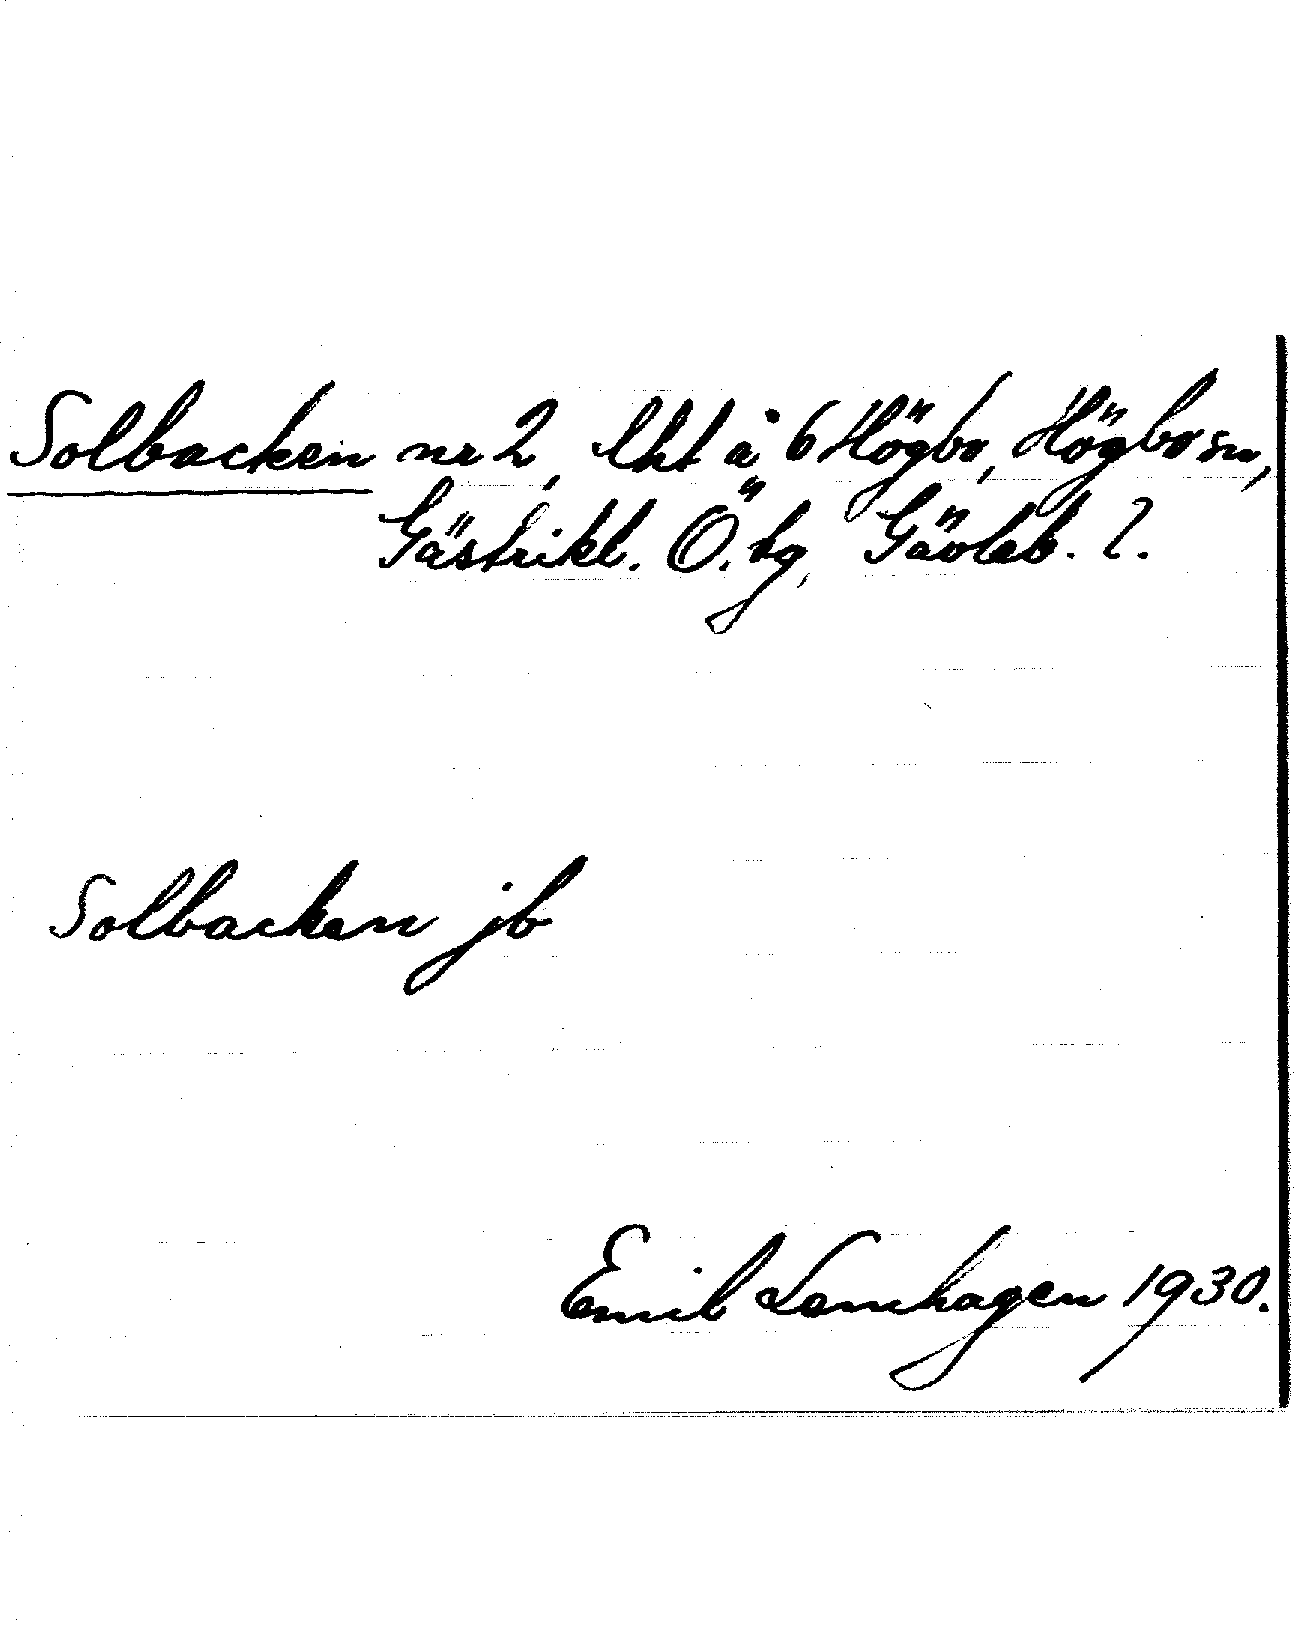 Solbacken nr 2, lht å 6 Högbo, Högbo sn,
Gästrikl. Ö. tg, Gävleb. l.
Solbacken jb
Emil Lennhagen 1930.